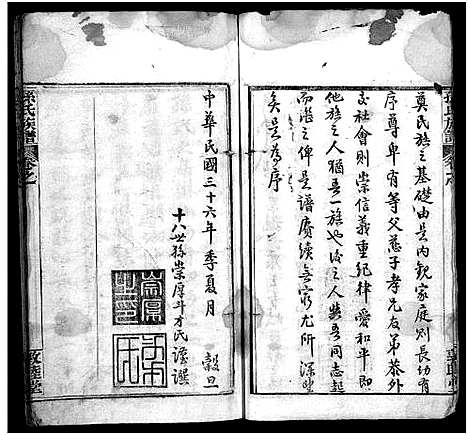 奠民族之基礎由是内観家庭則長幼有
序尊卑有等父慈子孝兄友弟恭外
交社會則崇信義重紀律愛和平即
他族之人猶吾一族也後之人與吾同志起
而繼之俾是譜賡續無窮尤所深望
矣是為序
孫氏族譜 卷之
中華民國三十六年季夏月 穀旦
十八世孫崇厚斗才氏謹撰
崇厚之印
孫氏族譜 卷之
敦睦堂